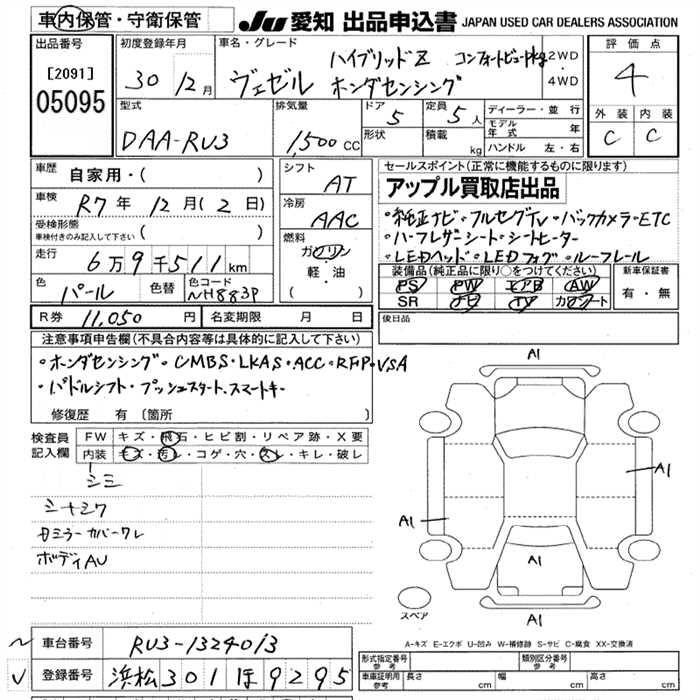 車内保管・守衛保管
JU 愛知 出品申込書 JAPAN USED CAR DEALERS ASSOCIATION
出品番号
[2091]
05095
初度登録年月
30 12月
車名・グレード
ハイブリッドZ コンフォートビューpkg
ヴェゼル ホンダセンシング
2WD
4WD
評価点
4
外装 内装
C C
型式
DAA-RU3
排気量
1,500 CC
ドア
5
形状
定員
5人
積載
kg
ディーラー・並行
モデル年式 年
ハンドル 左・右
車歴
自家用・( )
車検
R7年 12月(2日)
受検形態
車検付きのみ記入して下さい ( )
走行
6万9千511km
色
パール
色替
色コード
NH883P
シフト
AT
冷房
AAC
燃料
ガソリン
軽・油
( )
セールスポイント(正常に機能するものに限ります)
アップル買取店出品
・純正ナビ・フルセグTV・バックカメラ・ETC
・ハーフレザーシート・シートヒーター
・LEDヘッド・LEDフォグ・ルーフレール
装備品(純正品に限り○をつけてください)
PS PW エアB AW
SR ナビ TV カワシート
新車保証書
有・無
R券 11,050円
名変期限 月 日
後日品
注意事項申告欄(不具合内容等は具体的に記入して下さい)
・ホンダセンシング・CMBS・LKAS・ACC・RFP・VSA
・パドルシフト・プッシュスタート、スマートキー
修復歴 有 〔箇所 〕
検査員
記入欄
FW キズ・飛石・ヒビ割・リペア跡・X要
内装 キズ・汚レ・コゲ・穴・スレ・キレ・破レ
シミ
シートシワ
カミラーカバーワレ
ボディAU
A1
A1
A1
A1
A1
スペア
A-キズ E-エクボ U-凹み W-補修跡 S-サビ C-腐食 XX-交換済
車台番号 RU3-1324013
登録番号 浜松 301 ほ 9295
形式指定番号
参考
類別区分番号
参考
車車証記入
参考
長さ cm
幅 cm
高さ cm